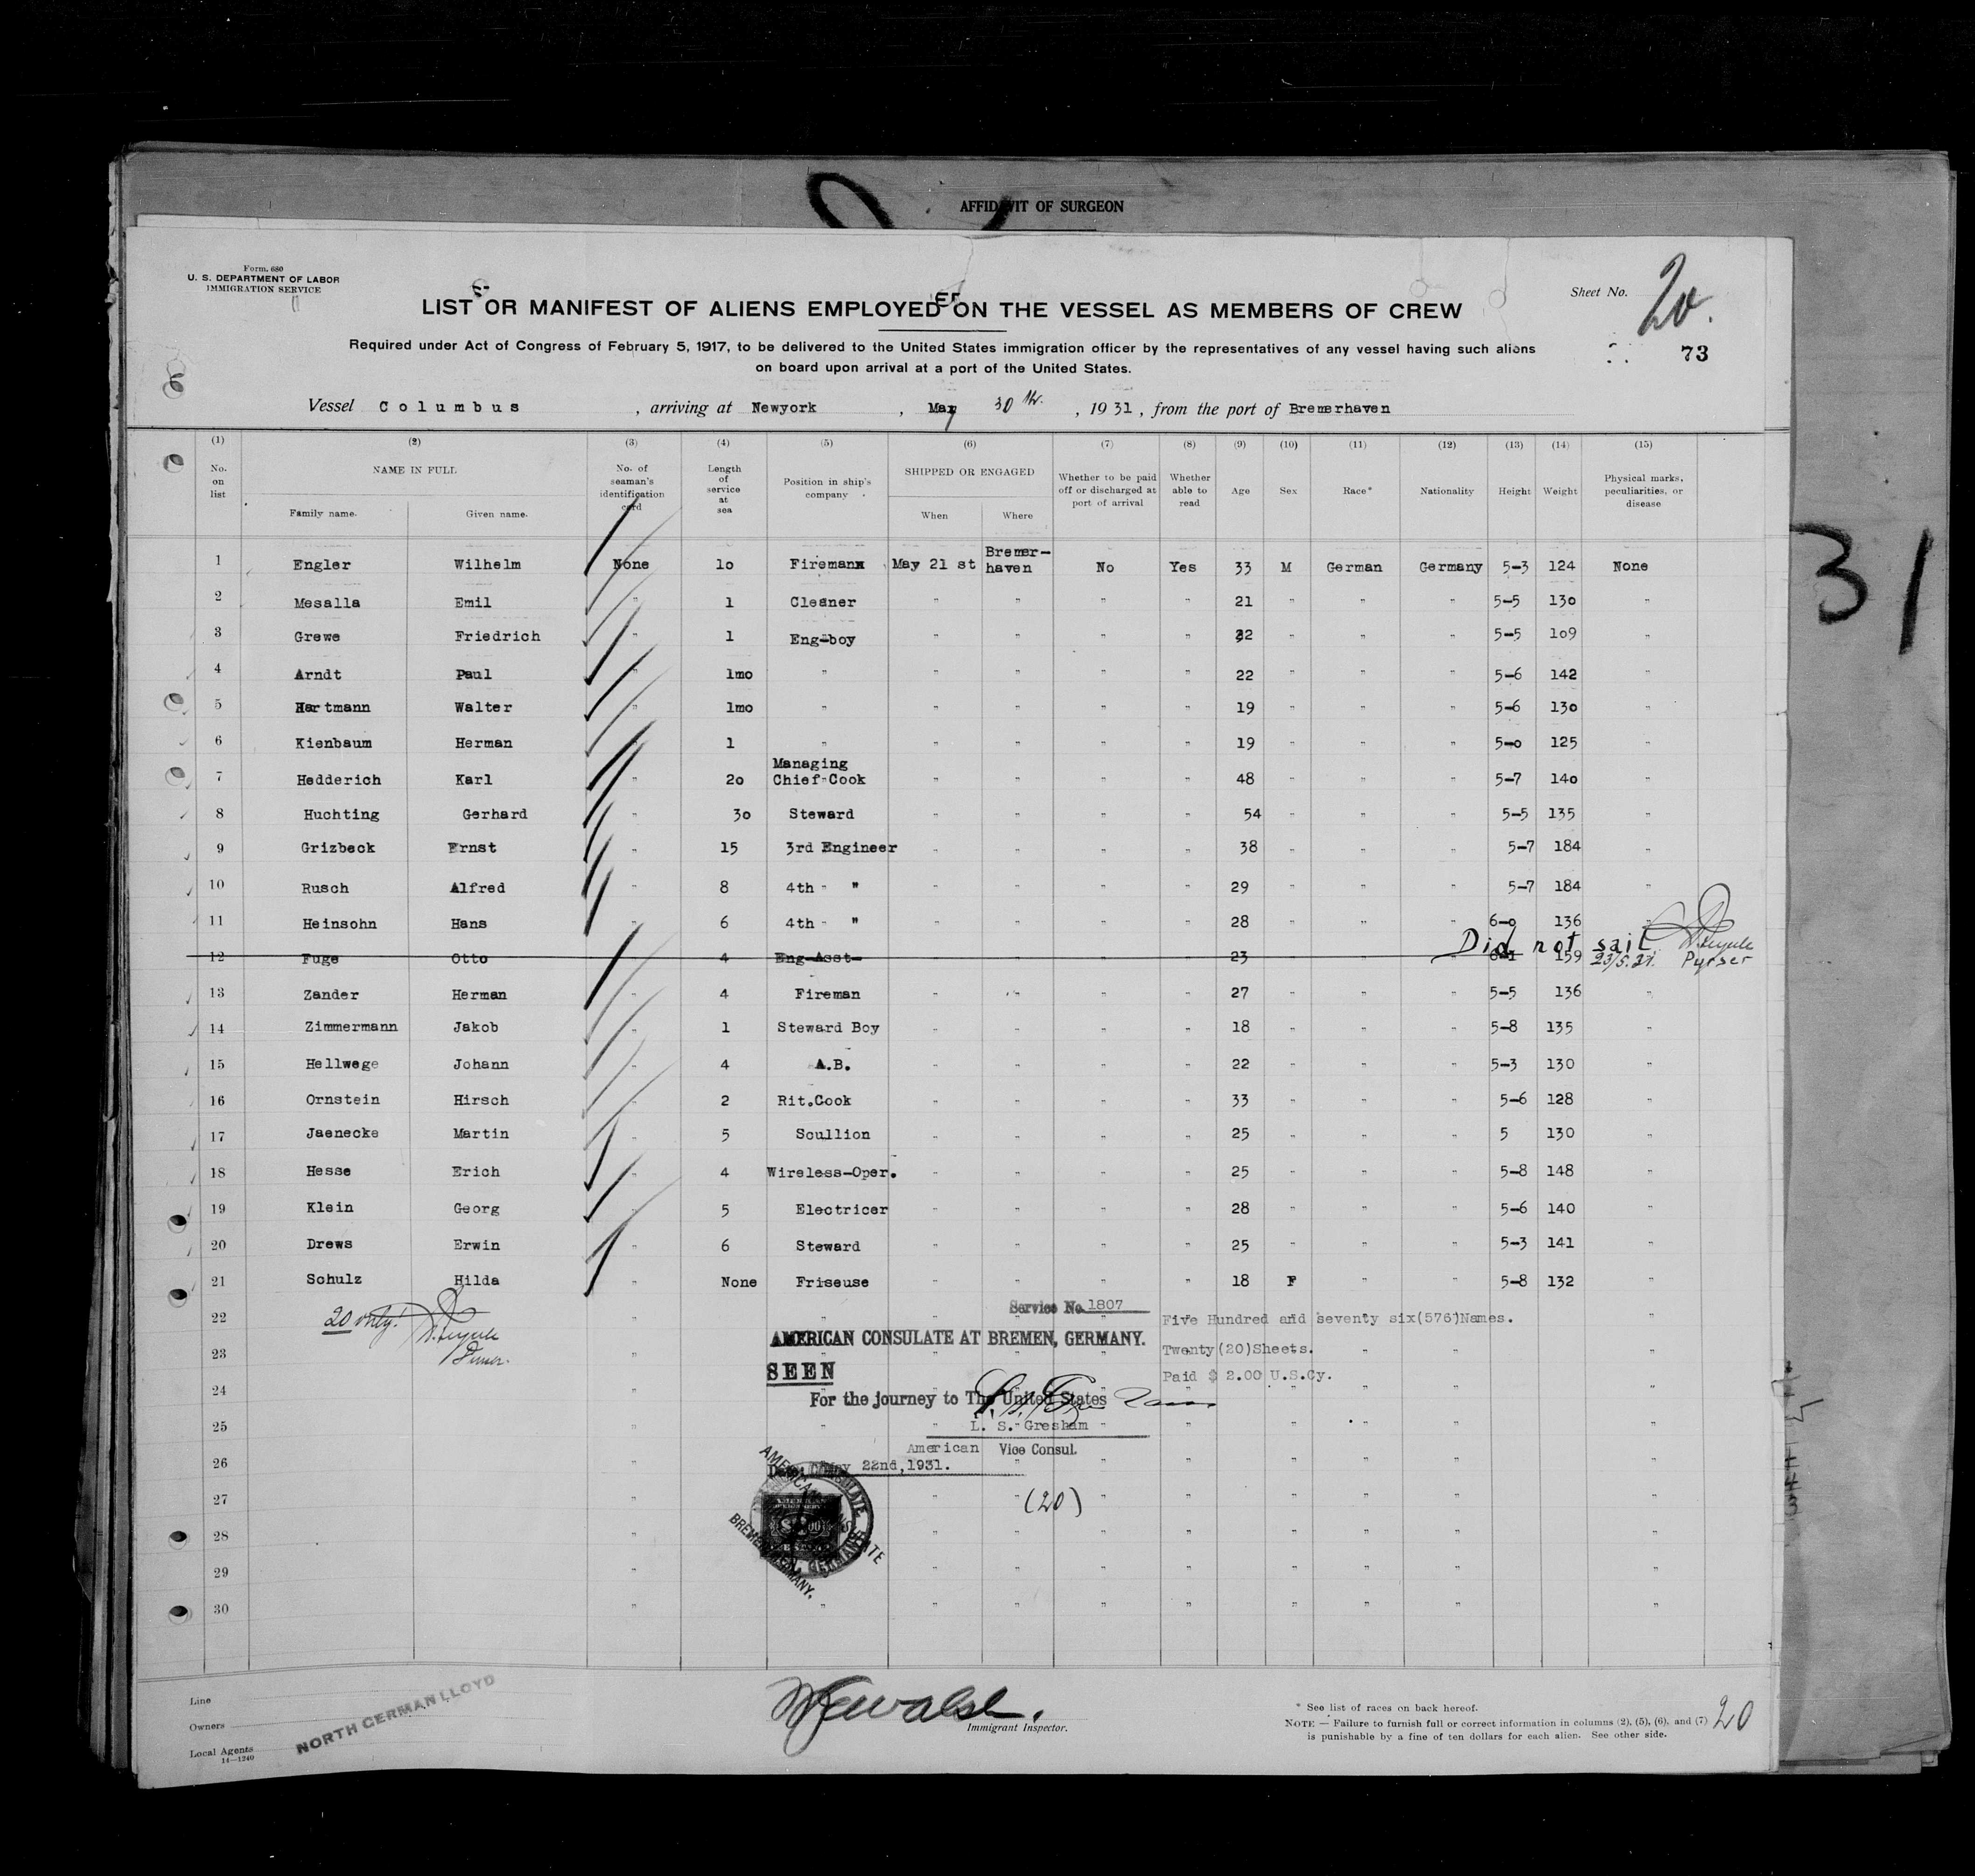 AFFIDAVIT OF SURGEON
Form. 680
U. S. DEPARTMENT OF LABOR
IMMIGRATION SERVICE
Sheet No. 20.
LIST OR MANIFEST OF ALIENS EMPLOYED ON THE VESSEL AS MEMBERS OF CREW
Required under Act of Congress of February 5, 1917, to be delivered to the United States immigration officer by the representatives of any vessel having such aliens
on board upon arrival at a port of the United States.
73
Vessel Columbus , arriving at Newyork , May 30th. , 1931, from the port of Bremerhaven
(1) (2) (3) (4) (5) (6) (7) (8) (9) (10) (11) (12) (13) (14) (15)
No. on list
NAME IN FULL
Family name. Given name.
No. of seaman's identification card
Length of service at sea
Position in ship's company
SHIPPED OR ENGAGED
When Where
Whether to be paid off or discharged at port of arrival
Whether able to read
Age Sex Race* Nationality Height Weight
Physical marks, peculiarities, or disease
1 Engler Wilhelm None 10 Firemann May 21 st Bremer-haven No Yes 33 M German Germany 5-3 124 None
2 Mesalla Emil " 1 Cleaner " " " " 21 " " " 5-5 130 "
3 Grewe Friedrich " 1 Eng-boy " " " " 22 " " " 5-5 109 "
4 Arndt Paul " 1mo " " " " " 22 " " " 5-6 142 "
5 Hartmann Walter " 1mo " " " " " 19 " " " 5-6 130 "
6 Kienbaum Herman " 1 " " " " " 19 " " " 5-0 125 "
7 Hedderich Karl " 20 Managing Chief-Cook " " " " 48 " " " 5-7 140 "
8 Huchting Gerhard " 30 Steward " " " " 54 " " " 5-5 135 "
9 Grizbeck Ernst " 15 3rd Engineer " " " " 38 " " " 5-7 184 "
10 Rusch Alfred " 8 4th - " " " " " 29 " " " 5-7 184 "
11 Heinsohn Hans " 6 4th - " " " " " 28 " " " 6-0 136 "
12 Fuge Otto 4 Eng-Asst- 23 159
Did not sail
23/5.31. Purser
13 Zander Herman " 4 Fireman " " " " 27 " " " 5-5 136 "
14 Zimmermann Jakob " 1 Steward Boy " " " " 18 " " " 5-8 135 "
15 Hellwege Johann " 4 A.B. " " " " 22 " " " 5-3 130 "
16 Ornstein Hirsch " 2 Rit.Cook " " " " 33 " " " 5-6 128 "
17 Jaenecke Martin " 5 Scullion " " " " 25 " " " 5 130 "
18 Hesse Erich " 4 Wireless-Oper. " " " " 25 " " " 5-8 148 "
19 Klein Georg " 5 Electricer " " " " 28 " " " 5-6 140 "
20 Drews Erwin " 6 Steward " " " " 25 " " " 5-3 141 "
21 Schulz Hilda " None Friseuse " " " " 18 F " " 5-8 132 "
22
23
24
25
26
27
28
29
30
20 only!
Purser.
Service No. 1807
AMERICAN CONSULATE AT BREMEN, GERMANY.
SEEN
For the journey to The United States
L. S. Gresham
American Vice Consul.
Date: May 22nd,1931.
Five Hundred and seventy six(576)Names.
Twenty(20)Sheets.
Paid $ 2.00 U.S.Cy.
(20)
AMERICAN CONSULATE
BREMEN, GERMANY.
Line
Owners
Local Agents
14-1240
NORTH GERMAN LLOYD
Immigrant Inspector.
* See list of races on back hereof.
NOTE — Failure to furnish full or correct information in columns (2), (5), (6), and (7)
is punishable by a fine of ten dollars for each alien. See other side.
20
31